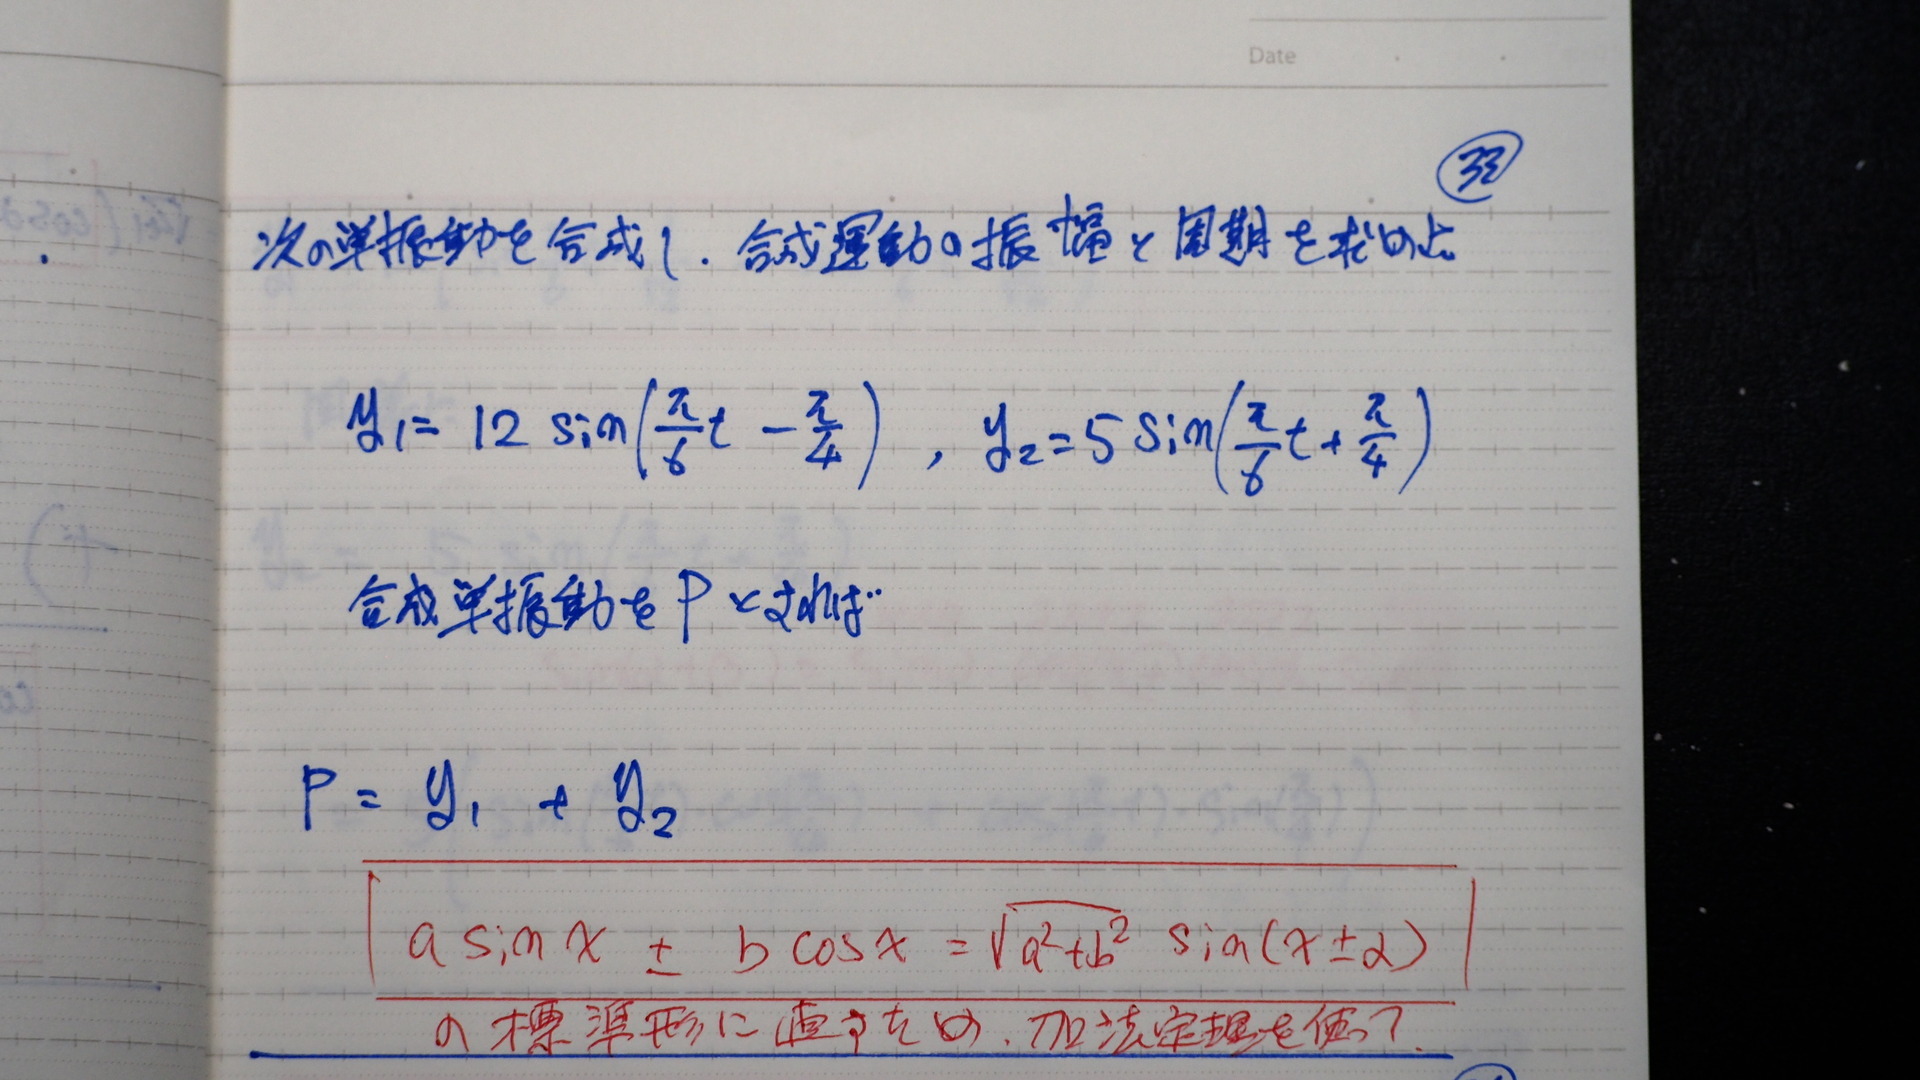 Date
33
次の単振動を合成し、合成運動の振幅と周期を求めよ。
y₁= 12 sin(π/6 t - π/4) , y₂=5 sin(π/6 t + π/4)
合成単振動を P とすれば
P = y₁ + y₂
a sin x ± b cos x = √a²+b² sin(x±α)
の標準形に直すため、加法定理を使って、